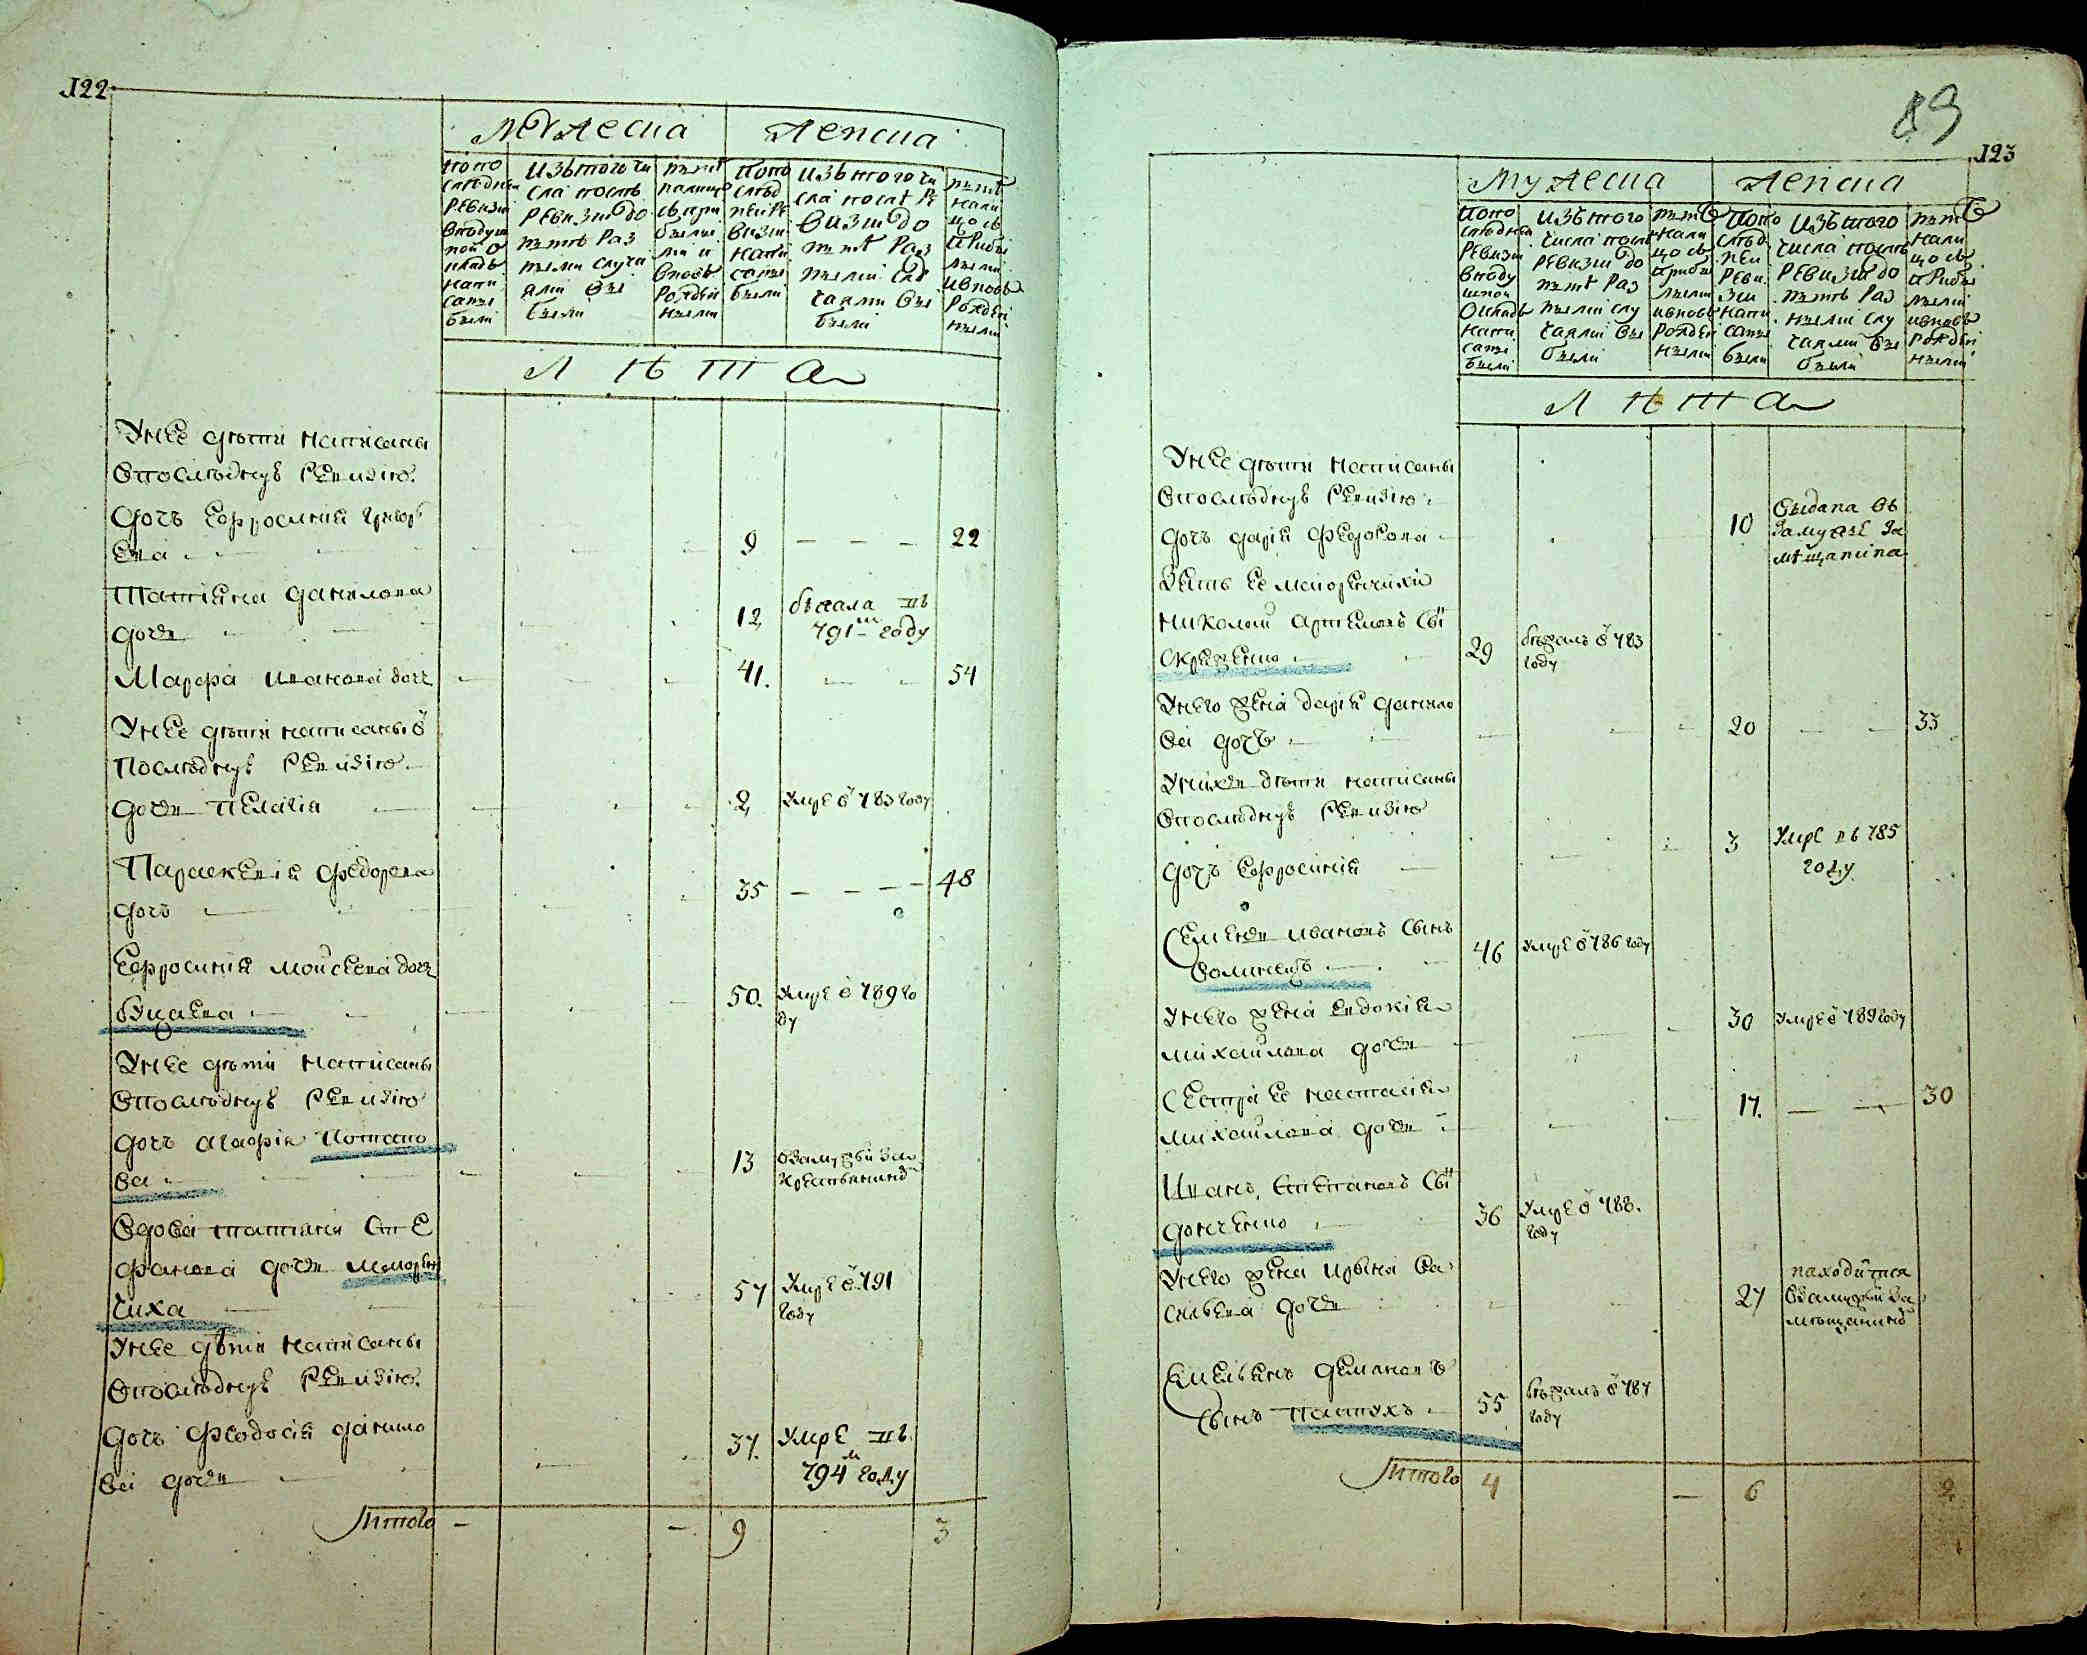 122
Мужеска
Женска
По по
следней
Ревизи
в подуш
ной о
кладъ
напи
саны
были
Изъ того чи
сла послѣ
Ревизии до
ныне Раз
ными случа
ями вы
были
ныне
налицо
съ при
былы
ми и
вновь
Рожден
ными
По по
след
ней Ре
визии
напи
саны
были
Изъ того чи
сла послѣ Ре
визии до
нынѣ Раз
ными слу
чаями вы
были
нынѣ
нали
цо съ
прибы
лыми
и вновь
Рожден
ными
Лѣта
У нее дѣти написаны
в последнуъ Ревизию
дочь Ефросиния Григорь
ева
9
22
Татияна Данилова
дочь
12
бежала въ
791м году
Марфа Иванова дочь
41
54
У нее дѣти написаны в
последнуъ Ревизию
дочь Пелагия
2
Умре в 783 году
Параскевия Федорова
дочь
35
48
Ефросиния Моисеева дочь
50
Умре в 789 го
ду
У нее дѣти написаны
в последнуъ Ревизию
дочь Агафия Потапо
ва
13
в замужъи за
крестьянином
Вдова Татияна Сте
фанова дочь
чиха
57
Умре в 791
году
У нее дѣти написаны
в последнуъ Ревизию
дочь Феодосия Данило
ва дочь
37
Умре въ
794м году
Итого
9
3
89
123
Мужеска
Женска
По по
следней
Ревизи
в поду
шной
окладъ
напи
саны
были
Изъ того
числа послѣ
Ревизии до
нынѣ Раз
ными слу
чаями вы
были
нынѣ
нали
цо съ
прибы
лыми
и вновь
Рожден
ными
По по
след
ней
Реви
зии
напи
саны
были
Изъ того
числа послѣ
Ревизии до
нынѣ Раз
ными слу
чаями вы
были
нынѣ
нали
цо съ
прибы
лыми
и вновь
Рожден
ными
Лѣта
У нее дѣти написаны
в последнуъ Ревизию
дочь Дария Федорова
10
выдана въ
замужъе за
мѣщанина
Зять ее
Николай Артемовъ сын
29
бежалъ в 783
году
У него жена Дария Данило
ва дочь
20
33
У них дѣти написаны
в последнуъ Ревизию
дочь Ефросиния
3
Умре въ 785
году
Семен Ивановъ сынъ
Волинецъ
46
Умре в 786 году
У него жена Евдокия
Михайлова дочь
30
Умре в 789 году
Сестра ее Наталия
Михайлова дочь
17
30
Иванъ Степановъ сын
36
Умре в 788
году
У него жена Ирина Ва
сильева дочь
27
находится
в замужъи за
мѣщанином
Емельянъ Демяновъ
сынъ Пастухъ
55
бежалъ в 787
году
Итого
4
6
2